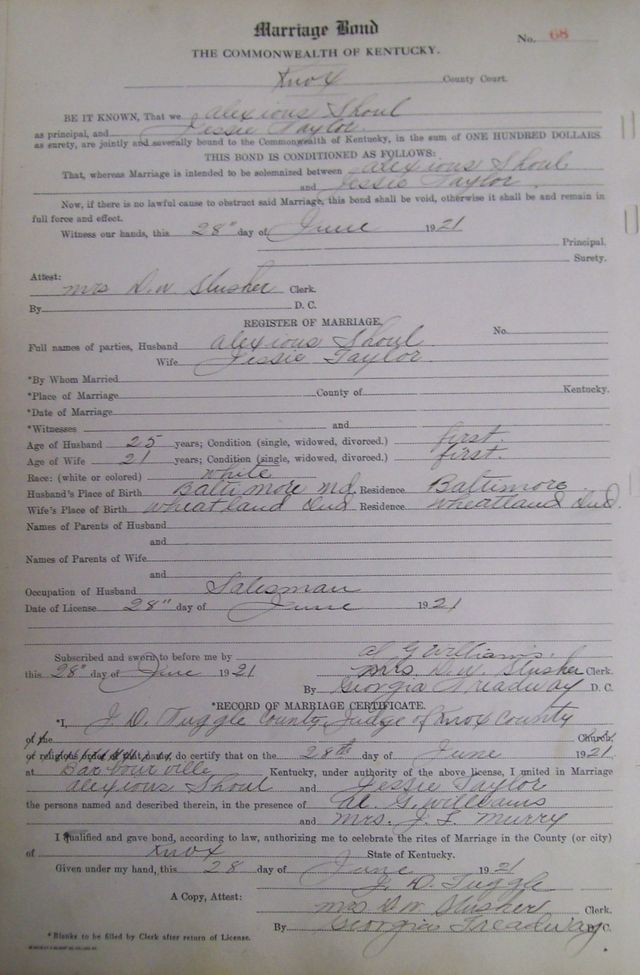 Marriage Bond
No. 68
THE COMMONWEALTH OF KENTUCKY.
Knox County Court.
BE IT KNOWN, That we Alexious Shoul
as principal, and Jessie Taylor
as surety, are jointly and severally bound to the Commonwealth of Kentucky, in the sum of ONE HUNDRED DOLLARS
THIS BOND IS CONDITIONED AS FOLLOWS:
That, whereas Marriage is intended to be solemnized between Alexious Shoul
and Jessie Taylor
Now, if there is no lawful cause to obstruct said Marriage, this bond shall be void, otherwise it shall be and remain in
full force and effect.
Witness our hands, this 28" day of June 1921
Principal.
Surety.
Attest:
Mrs D.W Slusher Clerk.
By D. C.
REGISTER OF MARRIAGE.
No.
Full names of parties, Husband Alexious Shoul
Wife Jessie Taylor
*By Whom Married
*Place of Marriage County of Kentucky.
*Date of Marriage
*Witnesses and
Age of Husband 25 years; Condition (single, widowed, divorced.) first.
Age of Wife 21 years; Condition (single, widowed, divorced.) first
Race: (white or colored) white
Husband's Place of Birth Baltimore Md. Residence Baltimore
Wife's Place of Birth Wheatland Ind Residence Wheatland Ind.
Names of Parents of Husband
and
Names of Parents of Wife
and
Occupation of Husband Salesman
Date of License 28" day of June 1921
Subscribed and sworn to before me by Al G Williams.
this 28" day of June 1921 Mrs. D.W. Slusher Clerk.
By Georgia Treadway D. C.
*RECORD OF MARRIAGE CERTIFICATE.
*I, J. D. Tuggle County Judge of Knox County
of the Church,
or religious order of that name, do certify that on the 28th day of June 1921
at Barbourville Kentucky, under authority of the above license, I united in Marriage
Alexious Shoul and Jessie Taylor
the persons named and described therein, in the presence of Al. G. Williams
and Mrs. J. L. Murry
I qualified and gave bond, according to law, authorizing me to celebrate the rites of Marriage in the County (or city)
of Knox State of Kentucky.
Given under my hand, this 28 day of June 1921
J. D. Tuggle
A Copy, Attest:
Mrs D W Slusher Clerk.
By Georgia Treadway D.C.
*Blanks to be filled by Clerk after return of License.